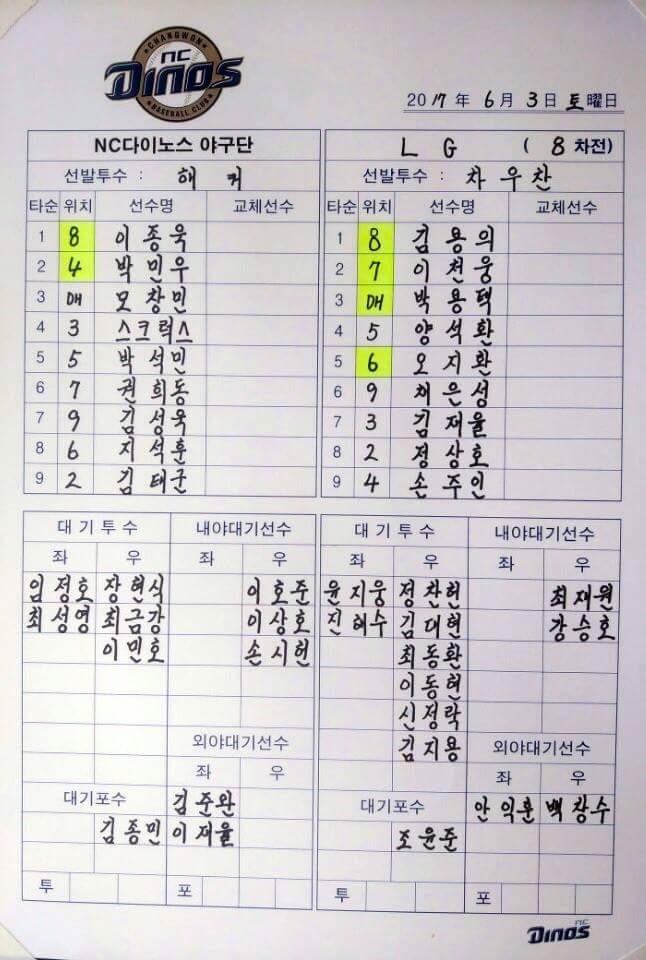 CHANGWON
NC
DINOS
BASEBALL CLUB
2017 年 6 月 3 日 토 曜日
NC다이노스 야구단
선발투수 : 해커
타순 위치 선수명 교체선수
1 8 이종욱
2 4 박민우
3 DH 모창민
4 3 스크럭스
5 5 박석민
6 7 권희동
7 9 김성욱
8 6 지석훈
9 2 김태군
LG ( 8 차전)
선발투수 : 차우찬
타순 위치 선수명 교체선수
1 8 김용의
2 7 이천웅
3 DH 박용택
4 5 양석환
5 6 오지환
6 9 채은성
7 3 김재율
8 2 정상호
9 4 손주인
대기투수 내야대기선수
좌 우 좌 우
임정호 장현식 이호준
최성영 최금강 이상호
이민호 손시헌
외야대기선수
좌 우
대기포수 김준완
김종민 이재율
투 포
대기투수 내야대기선수
좌 우 좌 우
윤지웅 정찬헌 최재원
진해수 김대현 강승호
최동환
이동현
신정락
김지용 외야대기선수
좌 우
대기포수 안익훈 백창수
조윤준
투 포
NC
DINOS